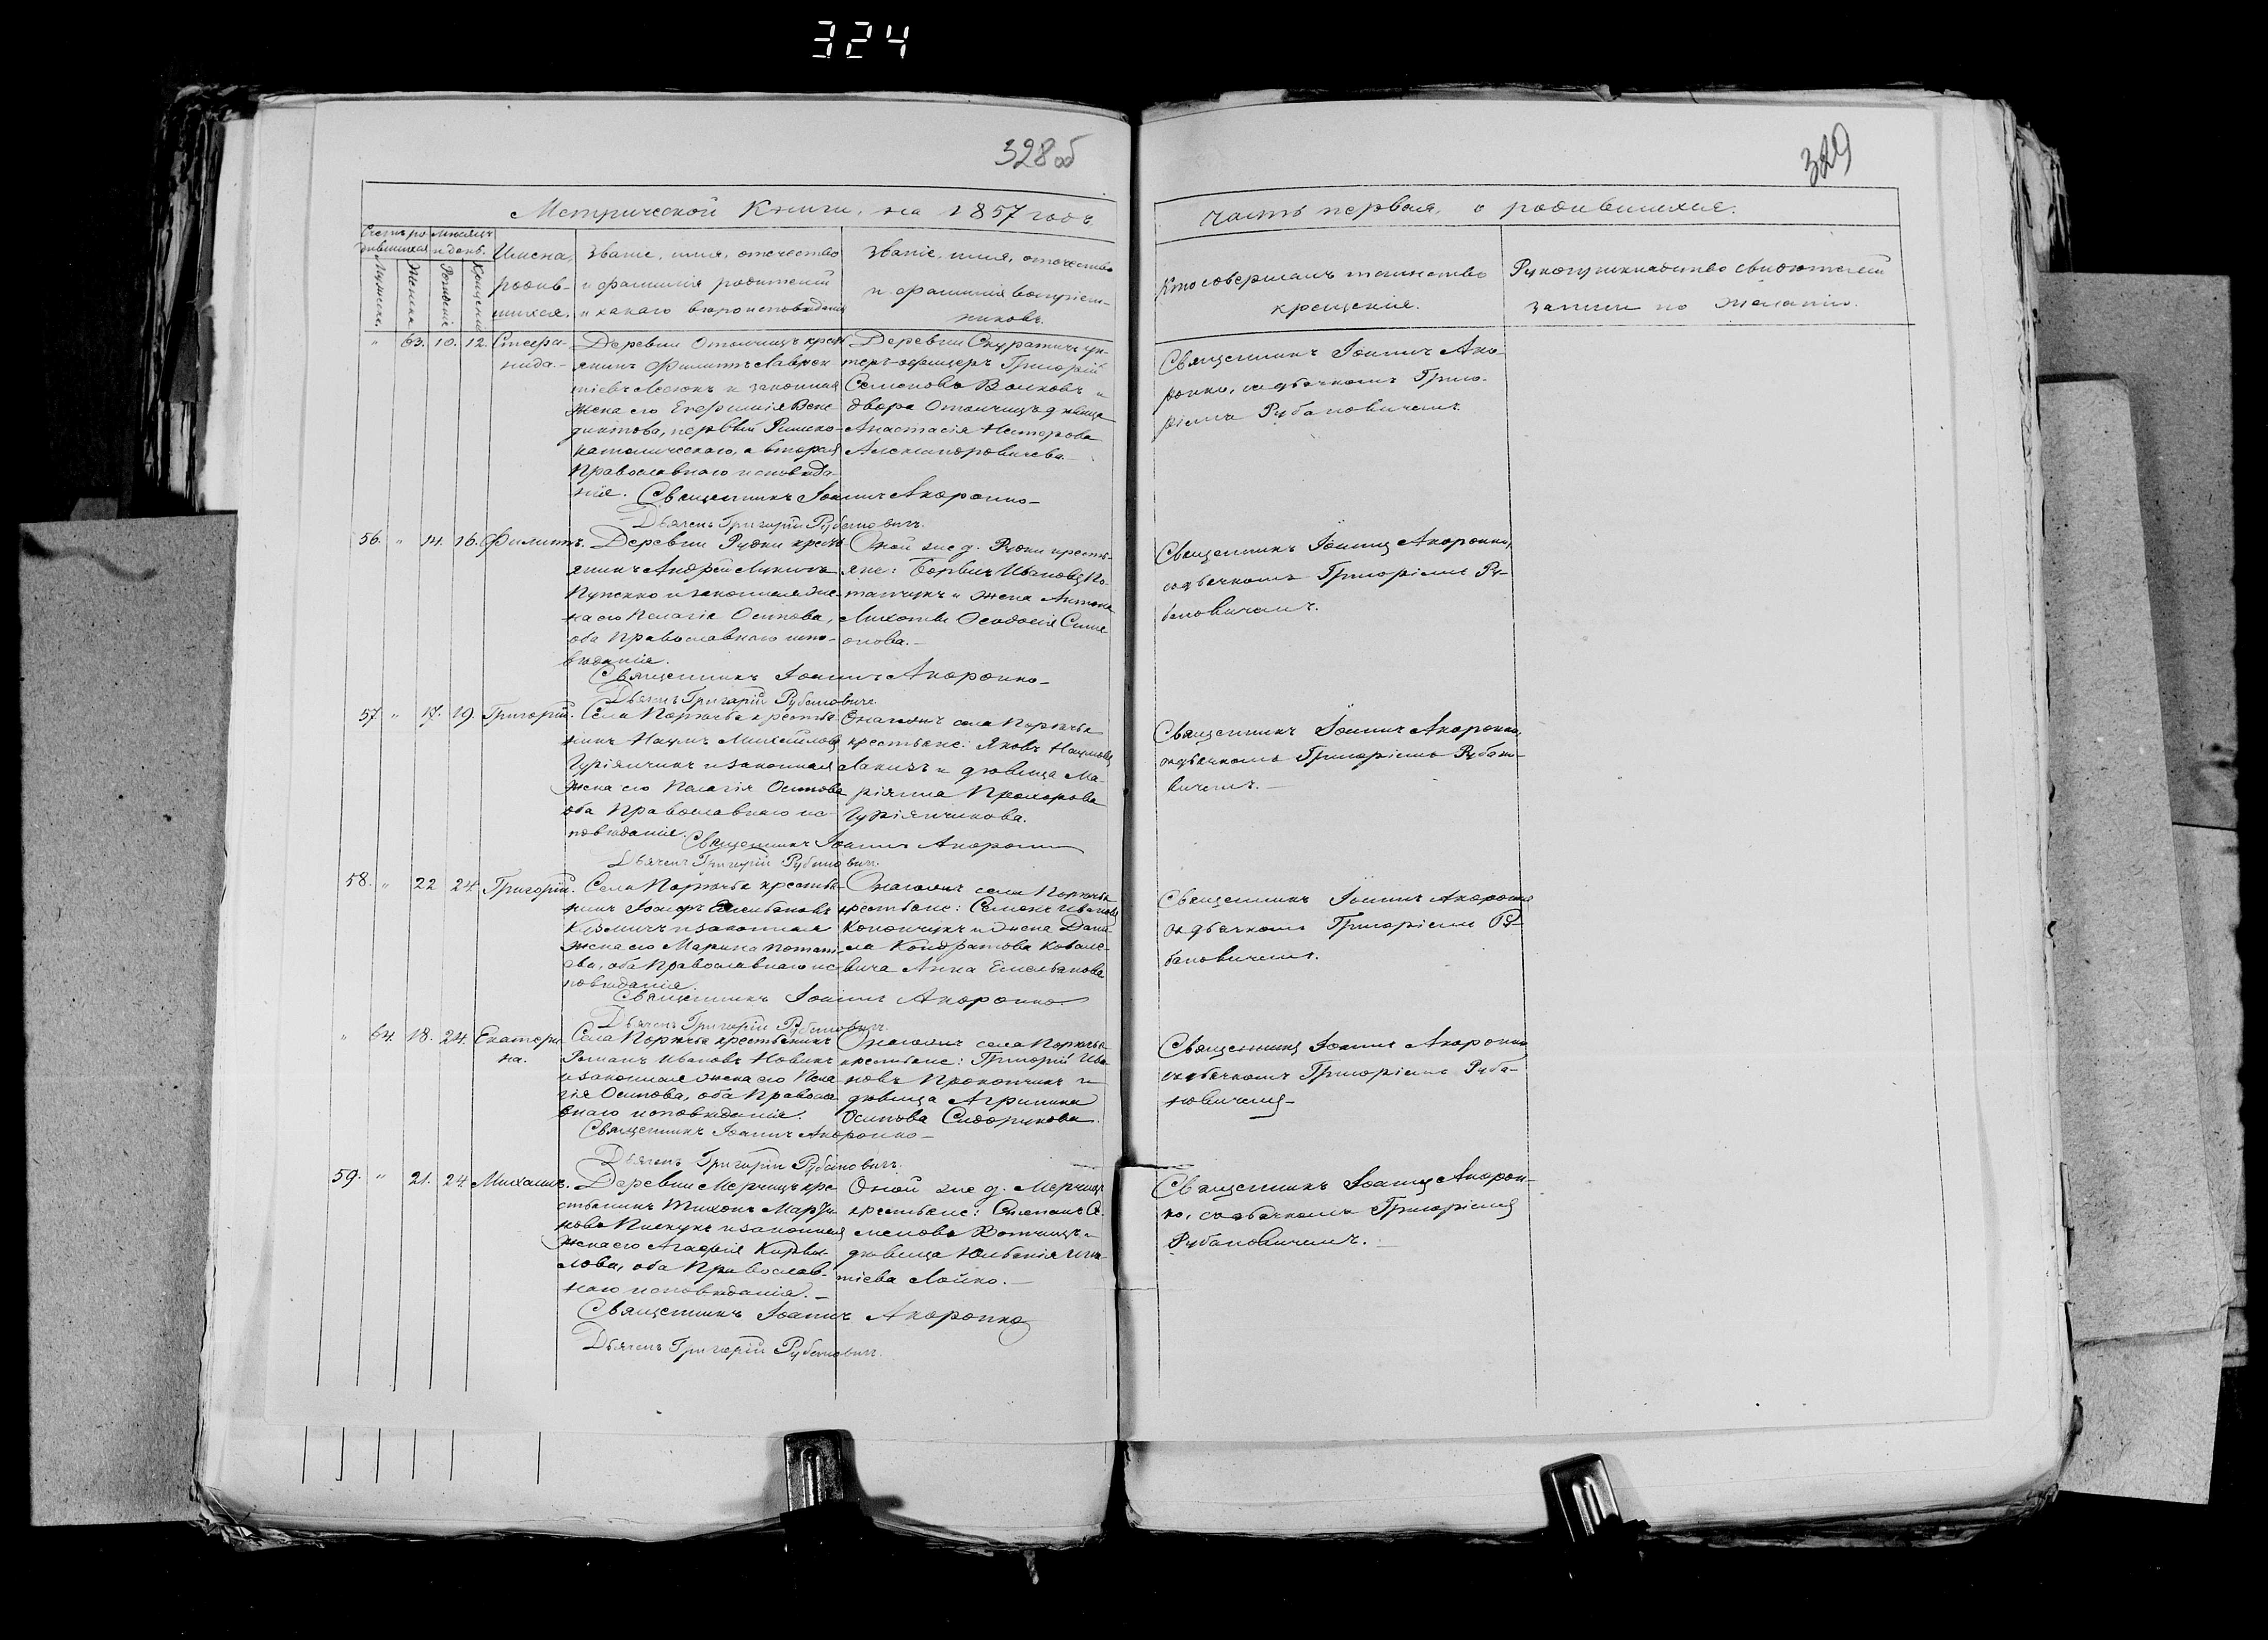 324
328об
329
Метрической Книги, на 1857 годъ
часть первая, о родившихся.
Счетъ ро-
дившихся
Мужеска.
Женска
мѣсяцъ
и день.
Рожденіе
Крещеніе
Имена
родив-
шихся.
Званіе, имя, отечество
и фамилія родителей
и какаго вѣроисповѣданія
Званіе, имя, отечество
и фамилія воспріем-
никовъ.
Кто совершалъ таинство
крещенія.
Рукоприкладство свидѣтелей
записи по желанію.
" 63. 10. 12. Стефа-
нида.
Деревни Отолчицъ кресть
янинъ Филиппъ Лаврен
тіевъ и законная
жена его Евфимія Вене
диктова, первый Римско-
католическаго, а вторая
Православнаго исповѣда-
нія.
Священникъ Іоаннъ
Дьячекъ Григорій Рубановичъ.
Деревни ун-
теръ-офицеръ Григорій
Семеновъ Волковъ и
двора Отолчицъ дѣвица
Анастасія Несторова
Александровичева.
Священникъ Іоаннъ
съ дьячкомъ Григо-
ріемъ Рубановичемъ.
56. " 14. 16. Филиппъ.
Деревни Рудки кресть
янинъ Андрей Лукинъ
и законная же-
на его Пелагія Осипова,
оба Православнаго испо-
вѣданія.
Священникъ Іоаннъ
Дьячекъ Григорій Рубановичъ
Оной же д. Рудки кресть-
яне: Ивановъ По-
тапчукъ и жена Антона
Ѳеодосія Симе
онова.
Священникъ Іоаннъ
съ дьячкомъ Григоріемъ Ру-
бановичемъ.
57 " 17. 19. Григорій.
Села Порѣчья крестья-
нинъ Наумъ Михайловъ
Гуріянчикъ и законная
жена его Пелагія Осипова
оба Православнаго ис-
повѣданія.
Священникъ Іоаннъ
Дьячекъ Григорій Рубановичъ.
Онагожъ села Порѣчья
крестьяне: Яковъ Наумовъ
и дѣвица Ма-
ріянна Прохорова
Гуріянчикова.
Священникъ Іоаннъ
съ дьячкомъ Григоріемъ Рубано-
вичемъ.
58. " 22 24 Григорій.
Села Порѣчья крестья-
нинъ Іосифъ Емельяновъ
и законная
жена его Марина Потапі
ева, оба Православнаго ис-
повѣданія.
Священникъ Іоаннъ
Дьячекъ Григорій Рубановичъ.
Онагожъ села Порѣчья
крестьяне: Семенъ Ивановъ
Конончукъ и жена Дани
ла Кондратова Ковале-
вича Анна Емельянова
Священникъ Іоаннъ
съ дьячкомъ Григоріемъ Ру-
бановичемъ.
" 64. 18. 24. Екатери
на.
Села Порѣчья крестьянинъ
Романъ Ивановъ Новикъ
и законная жена его Пела
гія Осипова, оба Правосла
внаго исповѣданія.
Священникъ Іоаннъ
Дьячекъ Григорій Рубановичъ.
Онагожъ села Порѣчья
крестьяне: Григорій Ива
новъ Прокопчикъ и
дѣвица Агрипина
Осипова Сидорукова.
Священникъ Іоаннъ
съ дьячкомъ Григоріемъ Руба-
новичемъ
59. " 21. 24. Михаилъ.
Деревни Мерчицъ кре
стьянинъ Тихонъ Марти
новъ и законная
жена его Агафія Кирил-
лова, оба Православ-
наго исповѣданія.
Священникъ Іоаннъ
Дьячекъ Григорій Рубановичъ.
Оной же д. Мерчицъ
крестьяне: Степанъ Се
меновъ и
дѣвица Юльянія Игна-
тіева Лойко.
Священникъ Іоаннъ
съ дьячкомъ Григоріемъ
Рубановичемъ.